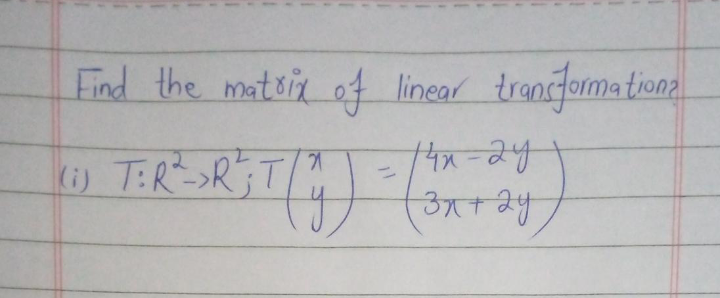 Find the matrix of linear transformation?
(i) T:R²->R²; T(x y) = (4x-2y 3x+2y)